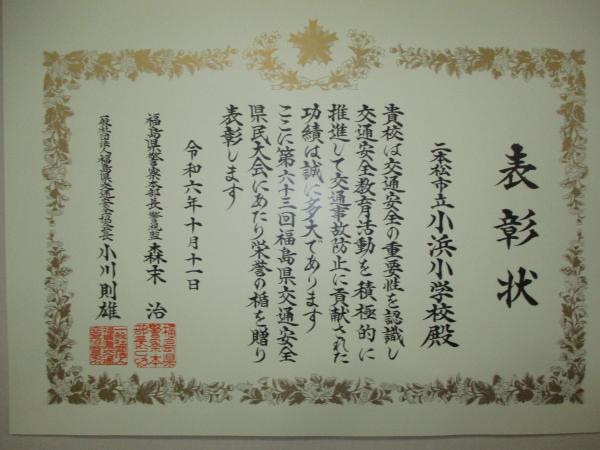 表彰状
二本松市立小浜小学校殿
貴校は交通安全の重要性を認識し
交通安全教育活動を積極的に
推進して交通事故防止に貢献された
功績は誠に多大であります
ここに第六十三回福島県交通安全
県民大会にあたり栄誉の楯を贈り
表彰します
令和六年十月十一日
福島県警察本部長警視監 森末 治
福島県交通安全協会長 小川則雄